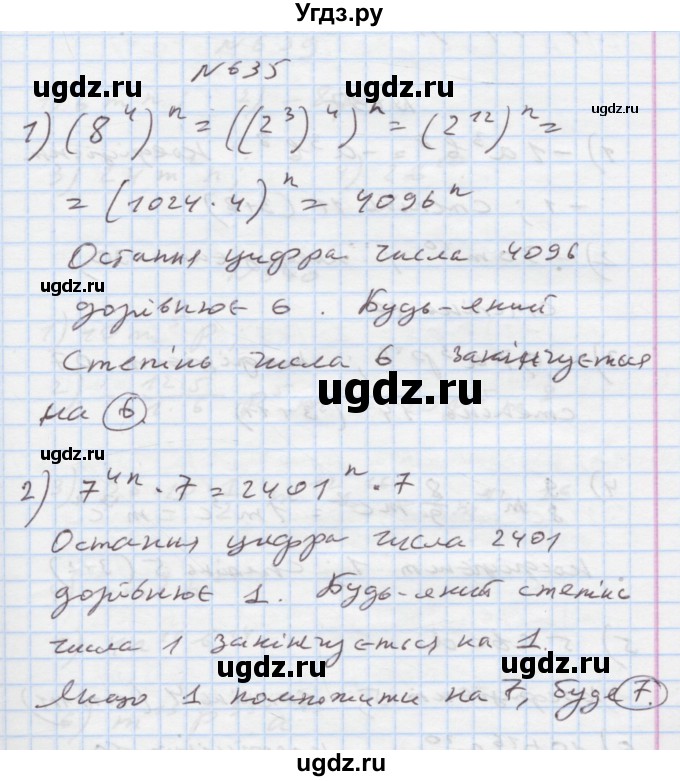 Угдз.ру
N 635
ugdz.ru
ugdz.ru
1) (8⁴)ⁿ = ((2³)⁴)ⁿ = (2¹²)ⁿ =
= (1024 · 4)ⁿ = 4096ⁿ
Остання цифра числа 4096
ugdz.ru
дорівнює 6. Будь-який
степінь числа 6 закінчується
ugdz.ru
на 6.
ugdz.ru
2) 7⁴ⁿ · 7 = 2401ⁿ · 7
Остання цифра числа 2401
дорівнює 1. Будь-який степінь
числа 1 закінчується на 1.
ugdz.ru
ugdz.ru
Якщо 1 помножити на 7, буде 7.
ugdz.ru
ugdz.ru